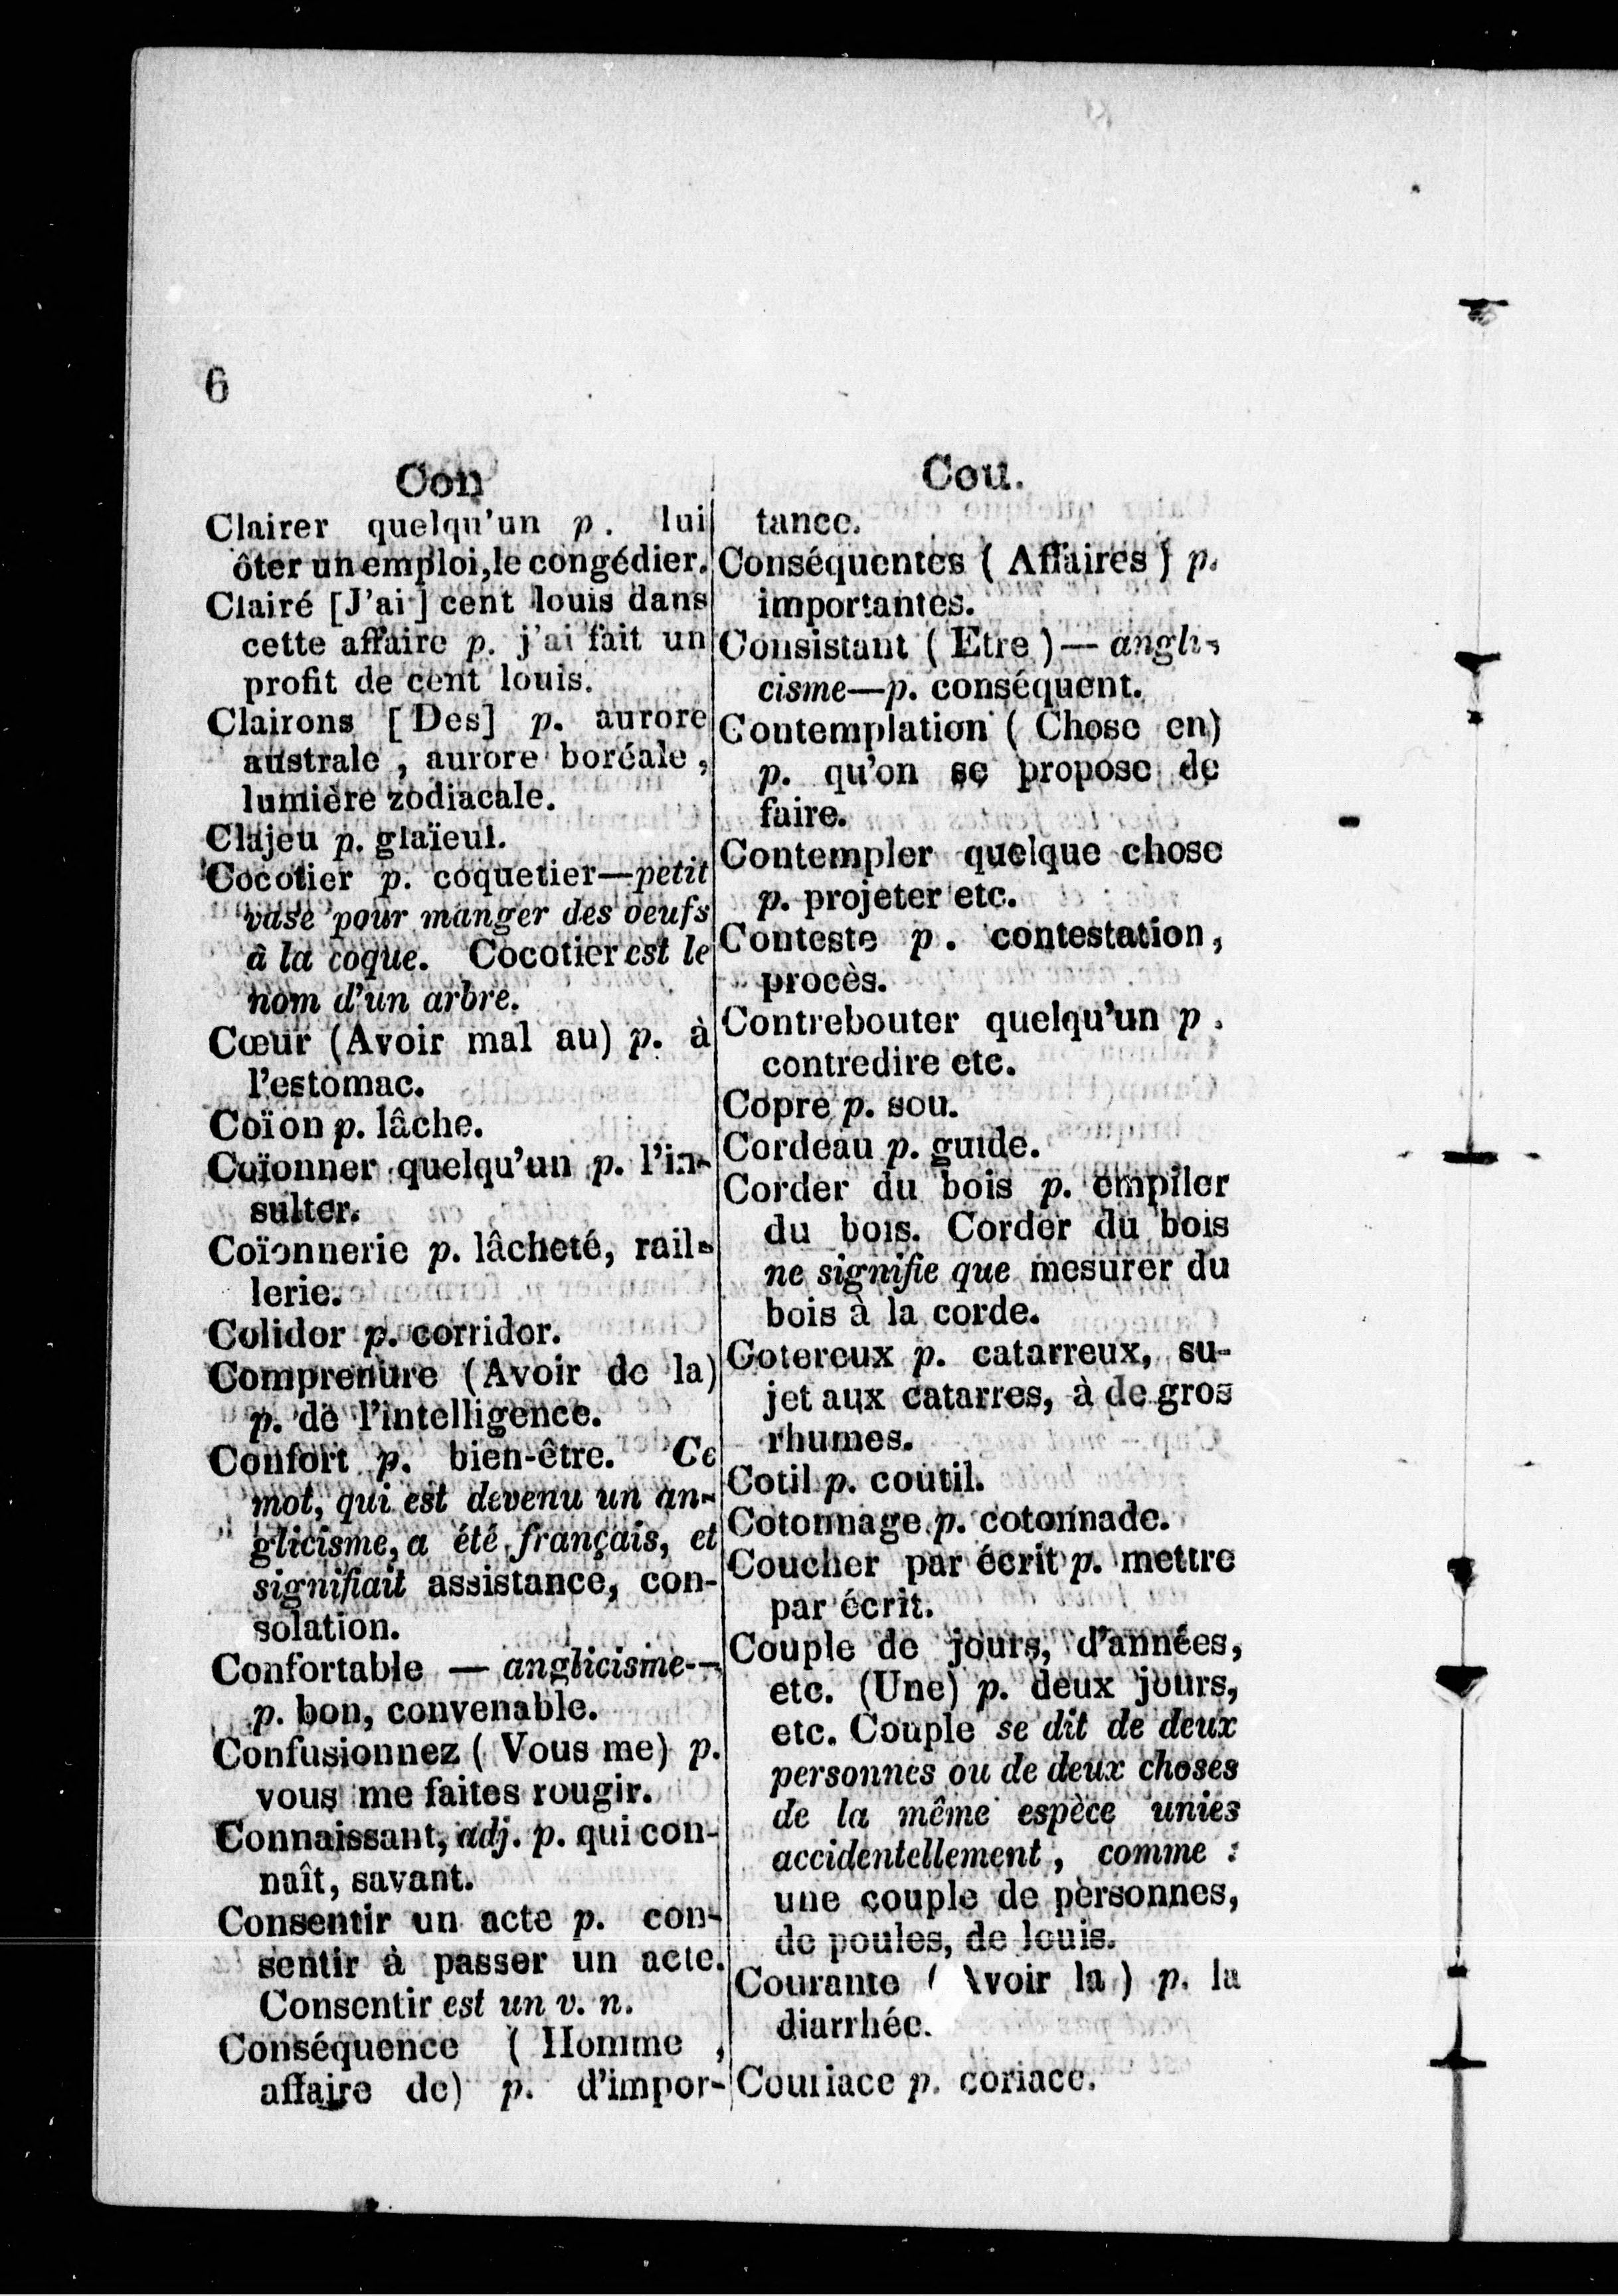 6
Con
Clairer quelqu'un p. lui
ôter un emploi, le congédier.
Clairé [J'ai] cent louis dans
cette affaire p. j'ai fait un
profit de cent louis.
Clairons [Des] p. aurore
australe, aurore boréale,
lumière zodiacale.
Clajeu p. glaïeul.
Cocotier p. coquetier—petit
vase pour manger des oeufs
à la coque. Cocotier est le
nom d'un arbre.
Cœur (Avoir mal au) p. à
l'estomac.
Coïon p. lâche.
Coïonner quelqu'un p. l'in-
sulter.
Coïonnerie p. lâcheté, rail-
lerie.
Colidor p. corridor.
Comprenure (Avoir de la)
p. de l'intelligence.
Confort p. bien-être. Ce
mot, qui est devenu un an-
glicisme, a été français, et
signifiait assistance, con-
solation.
Confortable — anglicisme—
p. bon, convenable.
Confusionnez (Vous me) p.
vous me faites rougir.
Connaissant, adj. p. qui con-
naît, savant.
Consentir un acte p. con-
sentir à passer un acte.
Consentir est un v. n.
Conséquence (Homme,
affaire de) p. d'impor-
Cou.
tance.
Conséquentes (Affaires) p.
importantes.
Consistant (Etre)—angli-
cisme—p. conséquent.
Contemplation (Chose en)
p. qu'on se propose de
faire.
Contempler quelque chose
p. projeter etc.
Conteste p. contestation,
procès.
Contrebouter quelqu'un p.
contredire etc.
Copre p. sou.
Cordeau p. guide.
Corder du bois p. empiler
du bois. Corder du bois
ne signifie que mesurer du
bois à la corde.
Cotereux p. catarreux, su-
jet aux catarres, à de gros
rhumes.
Cotil p. coutil.
Cotonnage p. cotonnade.
Coucher par écrit p. mettre
par écrit.
Couple de jours, d'années,
etc. (Une) p. deux jours,
etc. Couple se dit de deux
personnes ou de deux choses
de la même espèce unies
accidentellement, comme :
une couple de personnes,
de poules, de louis.
Courante (Avoir la) p. la
diarrhée.
Couriace p. coriace.